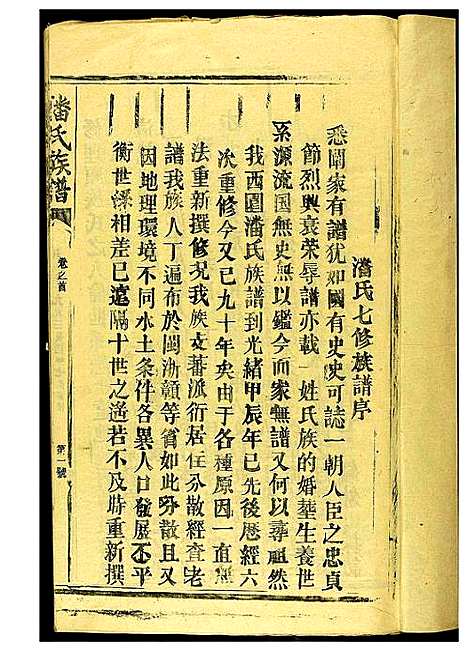 潘氏七修族譜序
悉聞家有譜犹如國有史史可誌一朝人臣之忠貞
節烈興衰荣辱譜亦載一姓氏族的婚塟生養世
系源流国無史無以鑑今而家無譜又何以尋祖然
我西園潘氏族譜到光緒甲辰年已先後歷經六
次重修今又已九十年矣由于各種原因一直無
法重新撰修况我族支蕃派衍居住分散經查老
譜我族人丁遍布於閩浙贛等省如此分散且又
因地理環境不同水土条件各異人口發展不平
衡世緣相差已遠隔十世之遥若不及時重新撰
潘氏族譜
卷之首
第一號